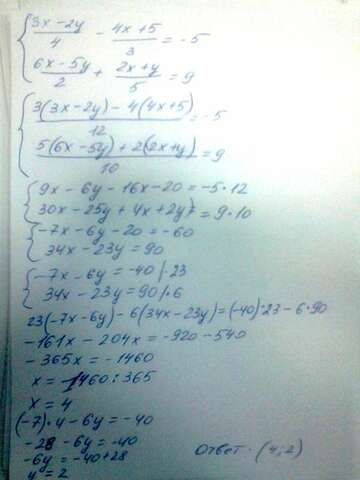 { (3x-2y)/4 - (4x+5)/3 = -5
(6x-5y)/2 + (2x+y)/5 = 9
{ (3(3x-2y)-4(4x+5))/12 = -5
(5(6x-5y)+2(2x+y))/10 = 9
{ 9x-6y-16x-20=-5·12
30x-25y+4x+2y=9·10
{ -7x-6y-20=-60
34x-23y=90
{ -7x-6y=-40 |·23
34x-23y=90 |·6
23(-7x-6y)-6(34x-23y)=(-40)·23-6·90
-161x-204x=-920-540
-365x=-1460
x=1460:365
x=4
(-7)·4-6y=-40
-28-6y=-40
-6y=-40+28
y=2
Ответ: (4;2)